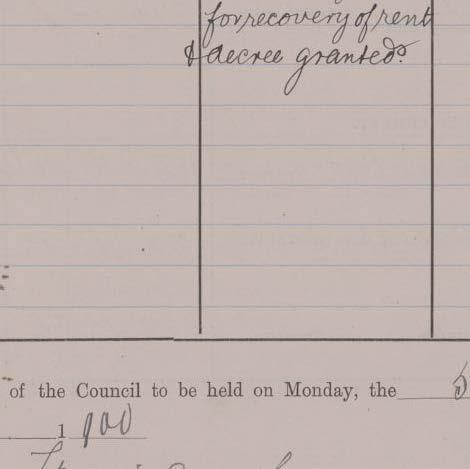 for recovery of rent
& decree granted.
of the Council to be held on Monday, the 5
1900